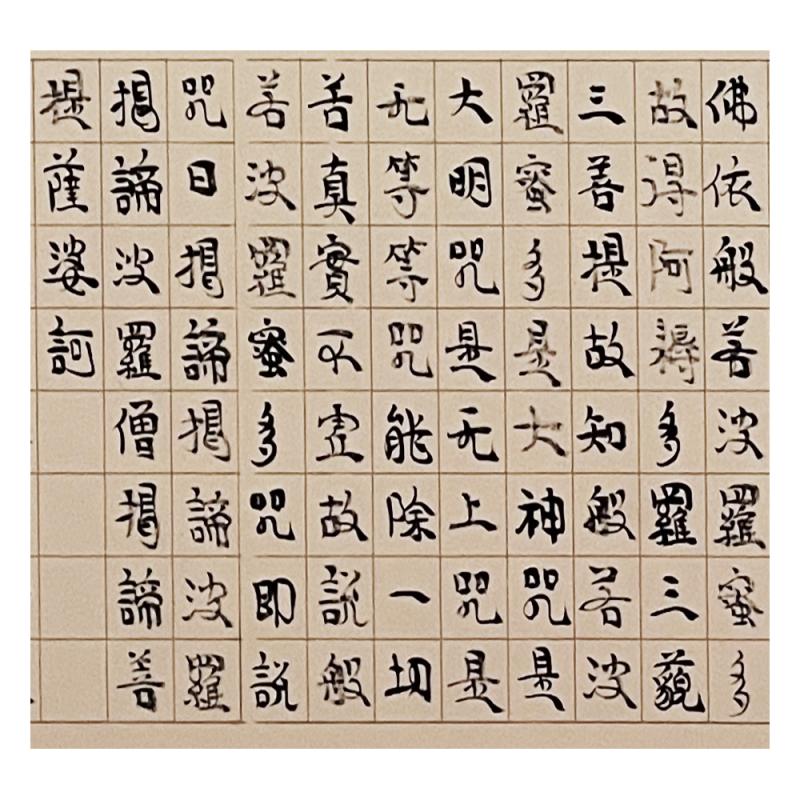 佛依般若波羅蜜多
故得阿耨多羅三藐
三菩提故知般若波
羅蜜多是大神咒是
大明咒是无上咒是
无等等咒能除一切
苦真實不虛故說般
若波羅蜜多咒即說
咒曰揭諦揭諦波羅
揭諦波羅僧揭諦菩
提薩婆訶